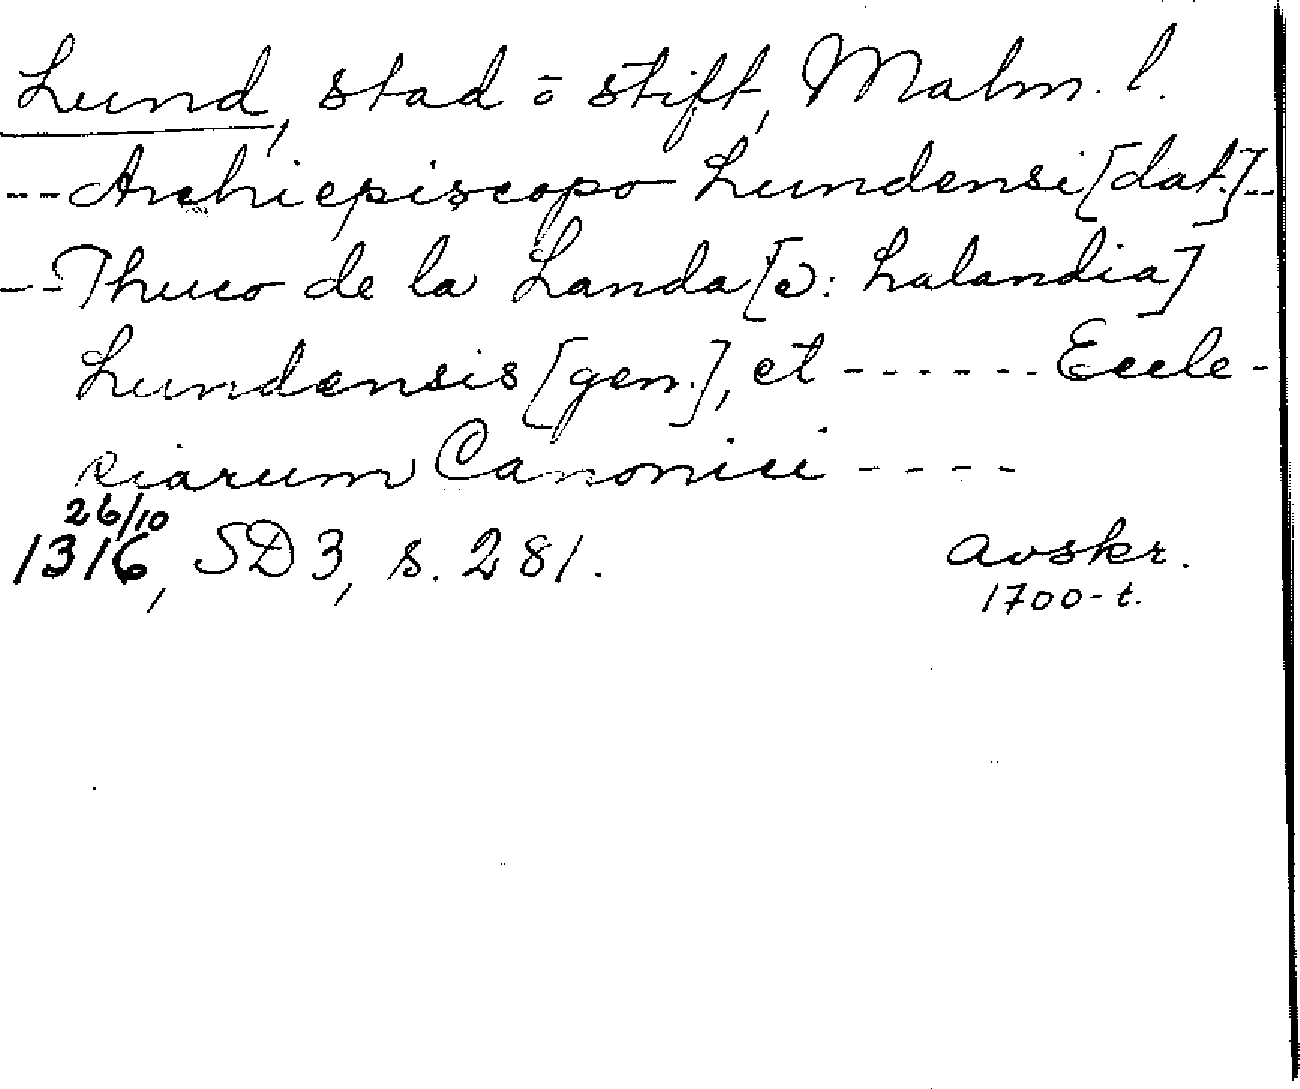 Lund, stad o stift, Malm. l.
-- Archiepiscopo Lundensi [dat.] --
-- Thuco de la Landa [ɔ: Lalandia]
Lundensis [gen.], et ------ Eccle-
siarum Canonici ----
26/10
1316, SD 3, s. 281. avskr.
1700-t.